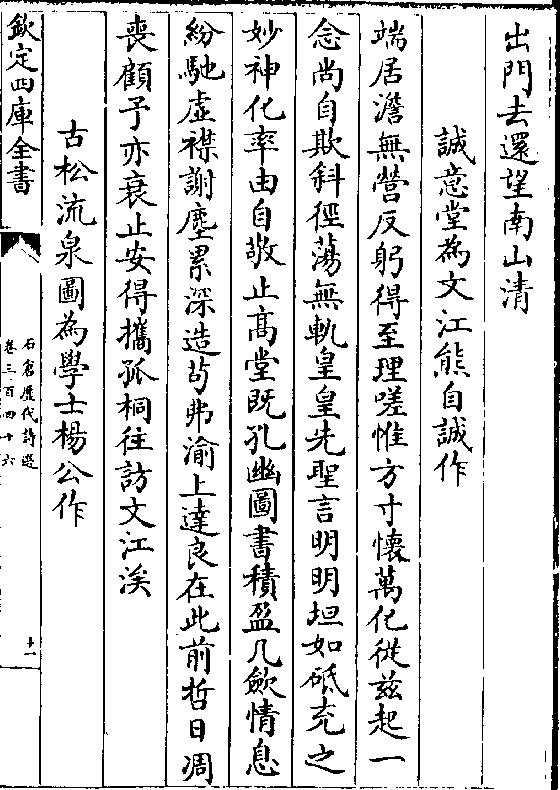 出門去還望南山清
誠意堂為文江熊自誠作
端居澹無營反躬得至理嗟惟方寸懷萬化從兹起一
念尚自欺斜徑蕩無軌皇皇先聖言明明坦如砥充之
妙神化率由自敬止髙堂既孔幽圖書積盈几歛情息
紛馳虛襟謝塵累深造苟弗渝上達良在此前哲日凋
喪顧予亦衰止安得攜孤桐往訪文江涘
古松流泉圖為學士楊公作
欽定四庫全書
石倉歴代詩選
卷三百四十六
十一